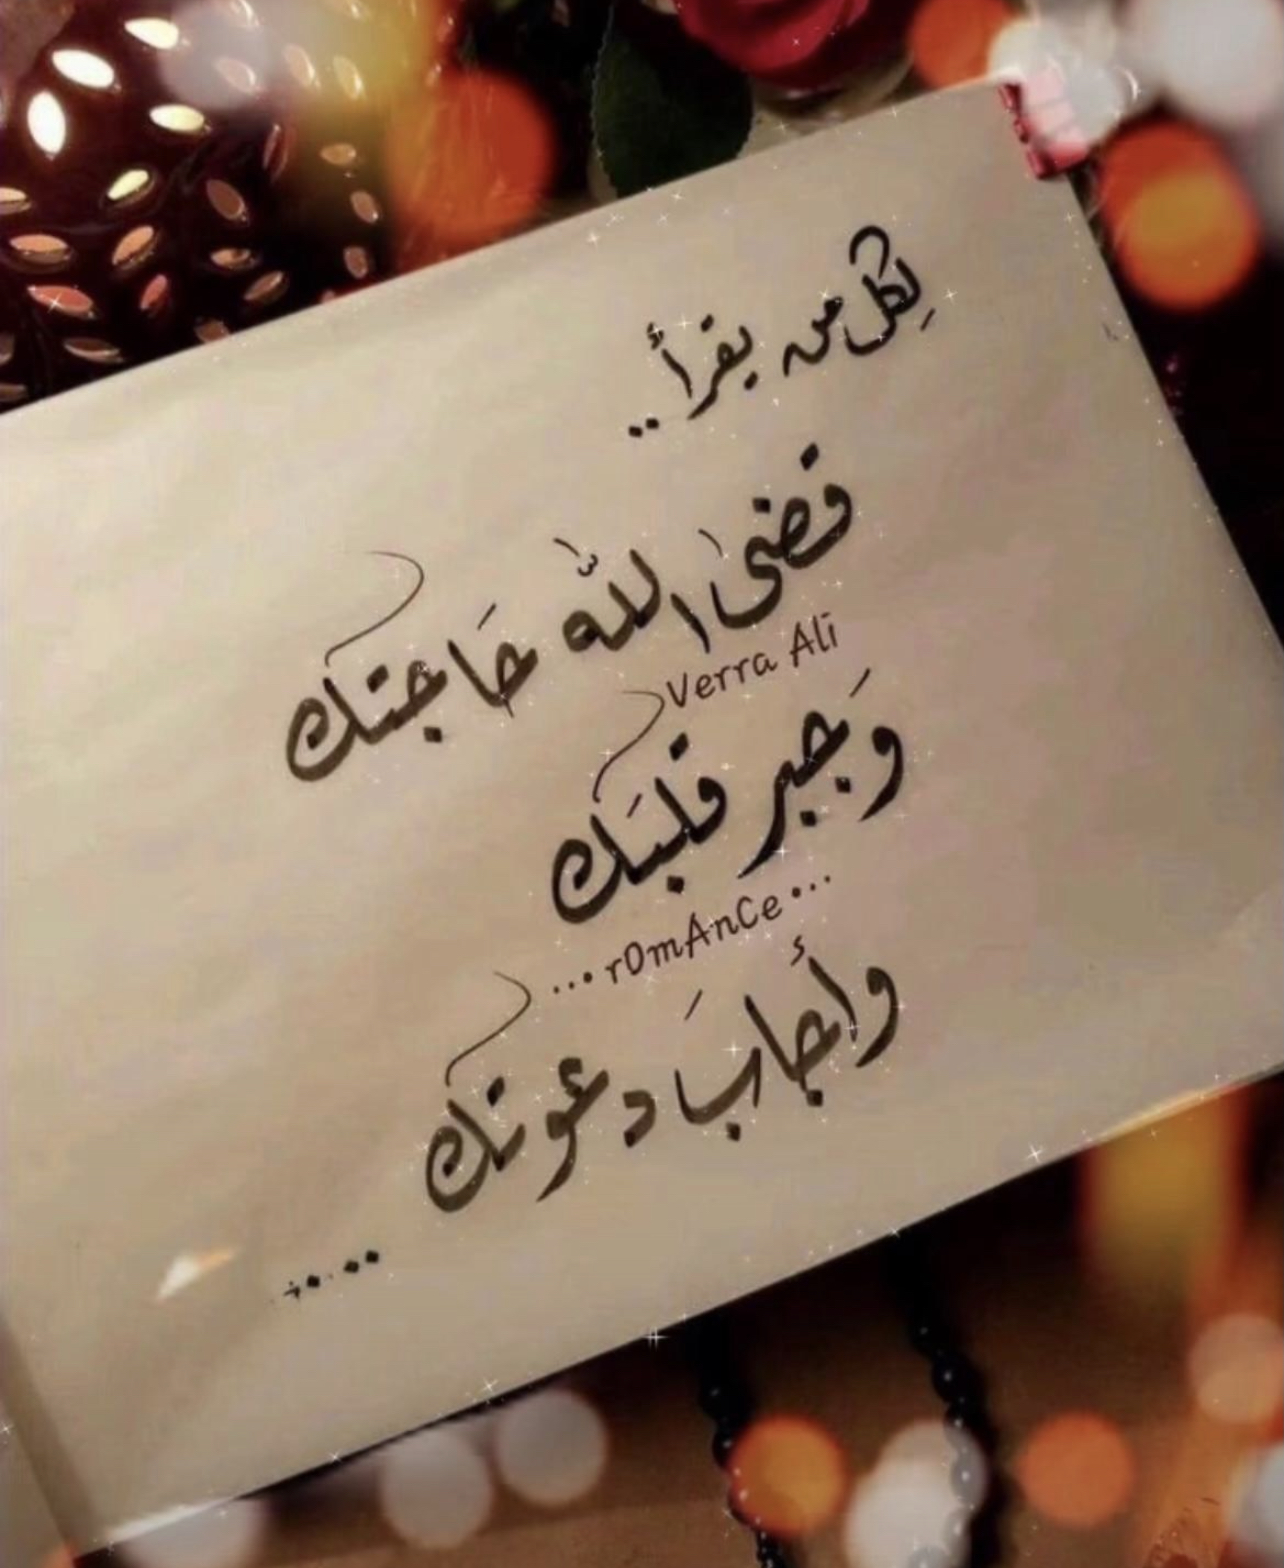 لِكل من يقرأ ..
قضىٰ اللّٰه حَاجتك
Verra Ali
وَجبر قلبَك
...rOmAnCe...
وأجابَ دعوتك
.....